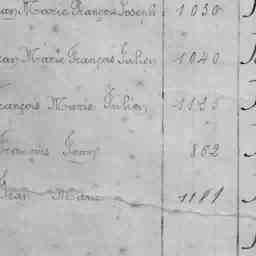 Jean Marie François Joseph 1030
Jean Marie François Julien 1040
François Marie Julien 1135
François Jean 862
Jean Marie 1181